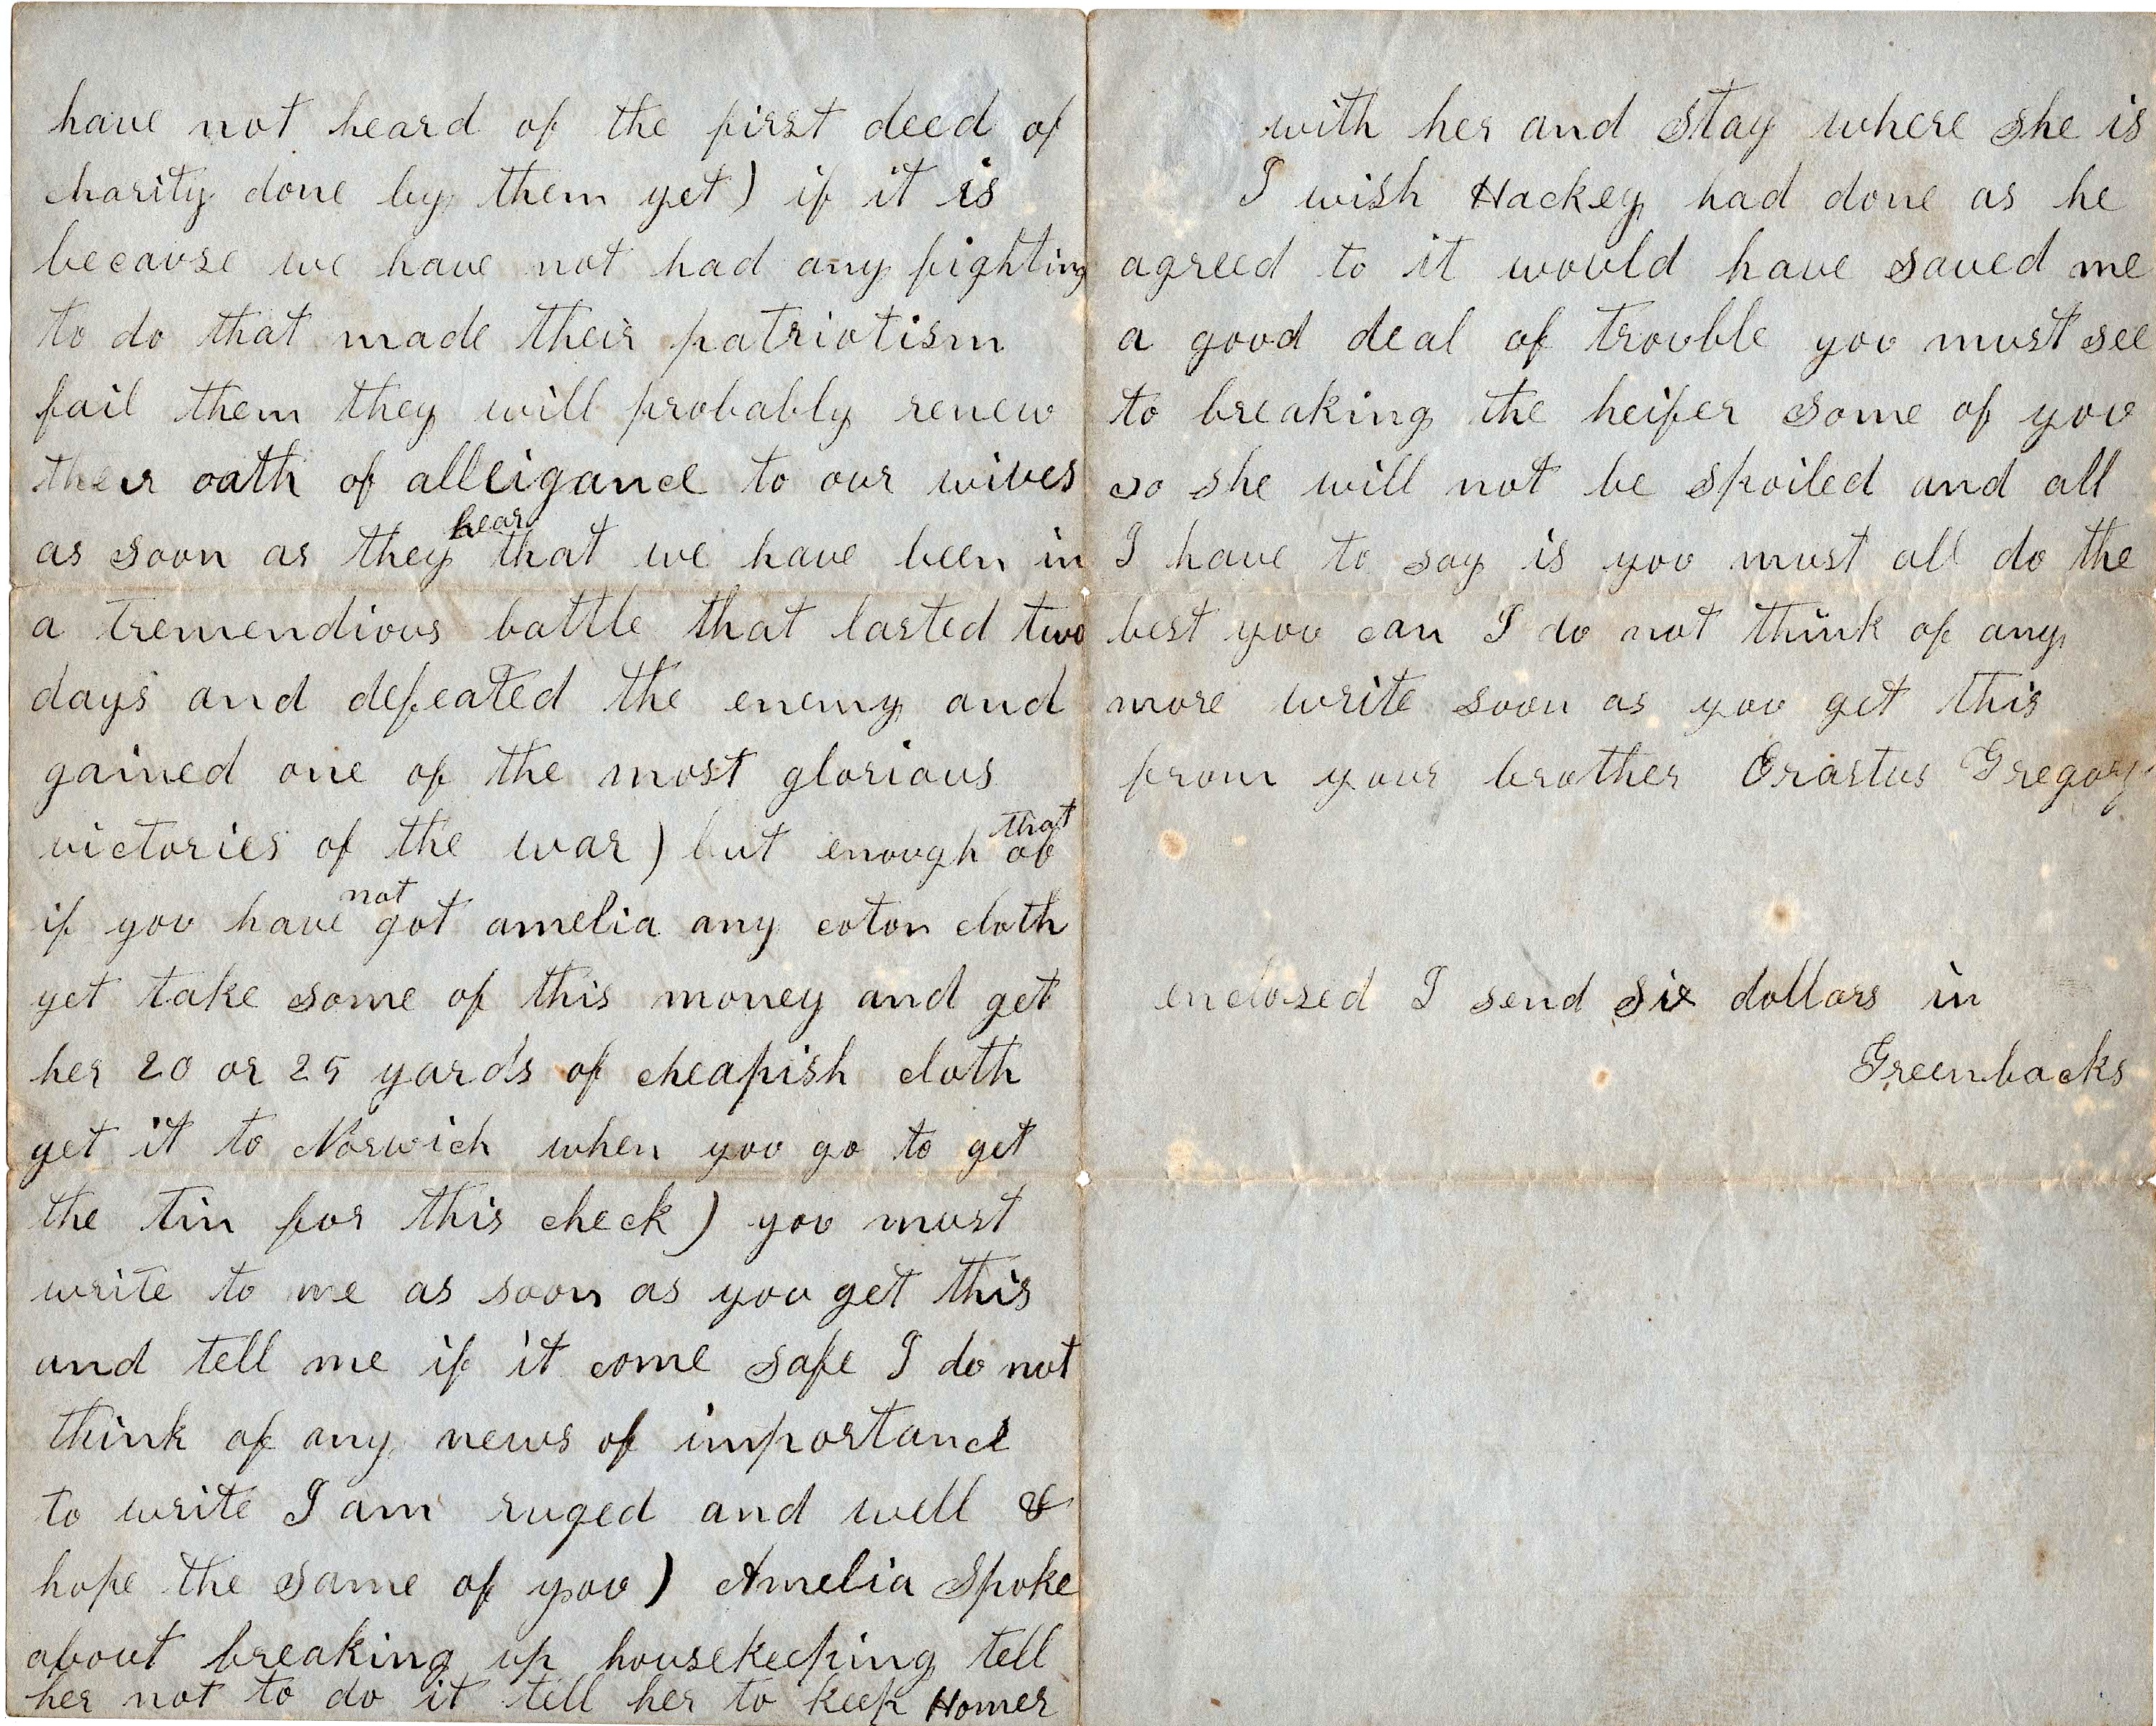 have not heard of the first deed of
charity done by them yet) if it is
because we have not had any fighting
to do that made their patriotism
fail them they will probably renew
their oath of alleigance to our wives
hear
as soon as they that we have been in
a tremendious battle that lasted two
days and defeated the enemy and
gained one of the most glorious
victories of the war) but enough of
that
not
if you have got amelia any coton cloth
yet take some of this money and get
her 20 or 25 yards of cheapish cloth
get it to Norwich when you go to get
the tin for this check) you must
write to me as soon as you get this
and tell me if it come safe I do not
think of any news of importance
to write I am ruged and well &
hope the same of you) Amelia Spoke
about breaking up housekeeping tell
her not to do it tell her to keep Homer
with her and stay where she is
I wish Hackey had done as he
agreed to it would have saved me
a good deal of trouble you must see
to breaking the heifer some of you
so she will not be spoiled and all
I have to say is you must all do the
best you can I do not think of any
more write soon as you get this
from your brother Erastus Gregory
enclosed I send six dollars in
Greenbacks